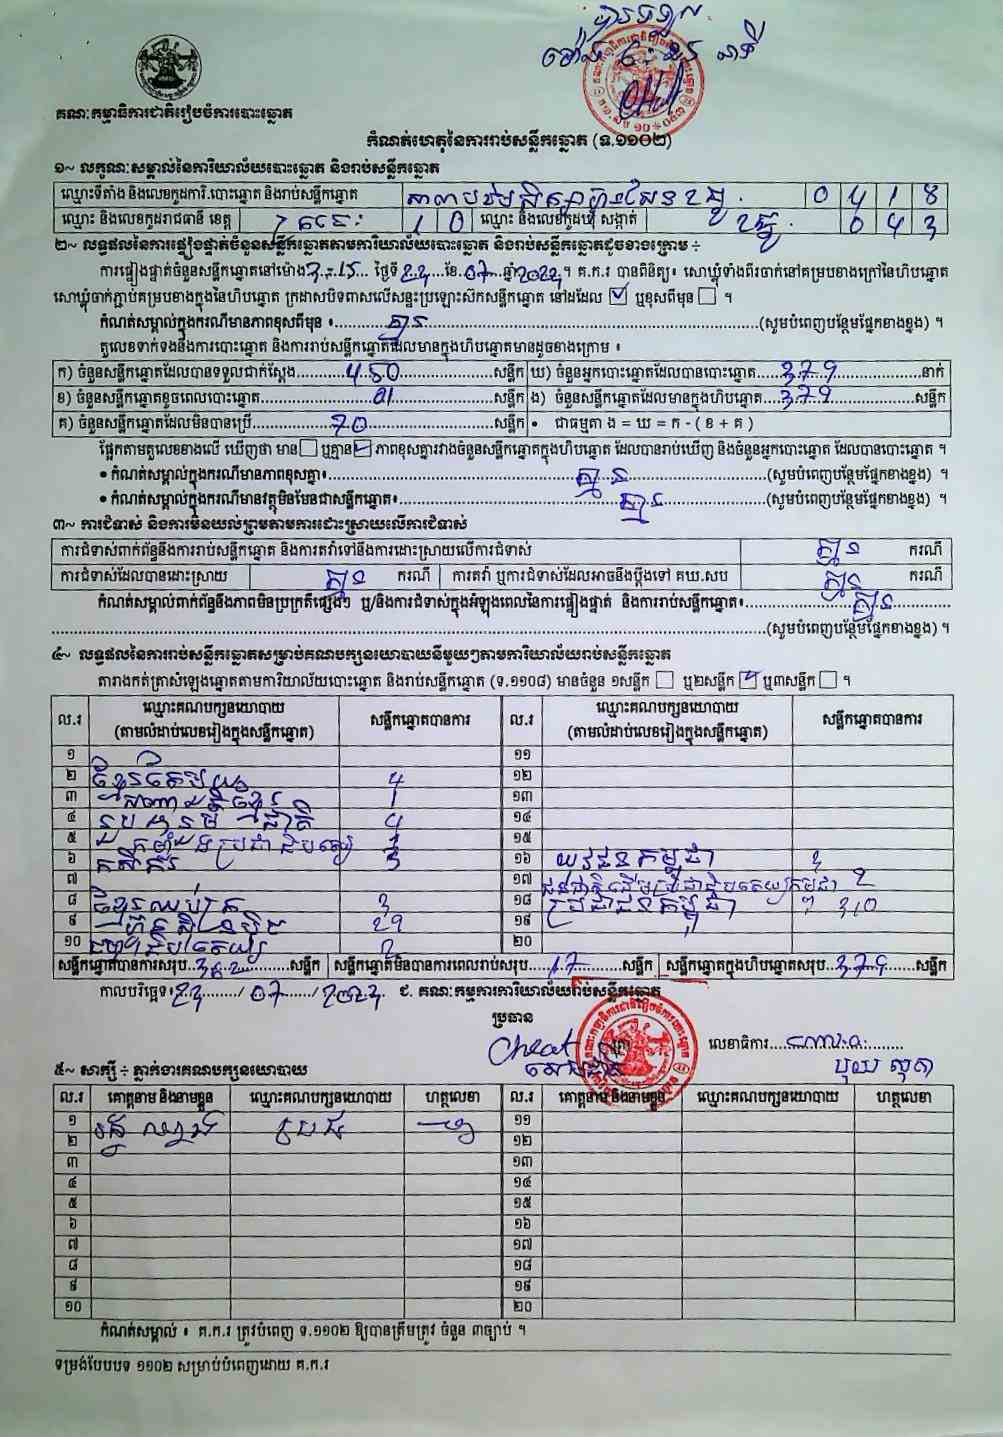 គណៈកម្មាធិការជាតិរៀបចំការបោះឆ្នោត
កំណត់ហេតុនៃការរាប់សន្លឹកឆ្នោត (ទ.១១០២)
១~ លក្ខណៈសម្គាល់នៃការិយាល័យបោះឆ្នោត និងរាប់សន្លឹកឆ្នោត
ឈ្មោះទីតាំង និងលេខកូដការិ.បោះឆ្នោត និងរាប់សន្លឹកឆ្នោត 0 4 1 8
ឈ្មោះ និងលេខកូដរាជធានី ខេត្ត ក្រចេះ 1 0 ឈ្មោះ និងលេខកូដឃុំ សង្កាត់ 0 4 3
២~ លទ្ធផលនៃការផ្ទៀងផ្ទាត់ចំនួនសន្លឹកឆ្នោតតាមការិយាល័យបោះឆ្នោត និងរាប់សន្លឹកឆ្នោតដូចខាងក្រោម ÷
ការផ្ទៀងផ្ទាត់ចំនួនសន្លឹកឆ្នោតនៅម៉ោង 3:15 ថ្ងៃទី ២៣ ខែ 07 ឆ្នាំ ២០២៣។ គ.ក.រ បានពិនិត្យ៖ សោឃ្លុំទាំងពីរចាក់នៅគម្របខាងក្រៅនៃហិបឆ្នោត
សោឃ្លុំចាក់ភ្ជាប់គម្របខាងក្នុងនៃហិបឆ្នោត ក្រដាសបិទពាសលើសន្ទះប្រឡោះស៊កសន្លឹកឆ្នោត នៅដដែល ☑ ឬខុសពីមុន ☐ ។
កំណត់សម្គាល់ក្នុងករណីមានភាពខុសពីមុន ៖ គ្មាន (សូមបំពេញបន្ថែមផ្នែកខាងខ្នង) ។
តួលេខទាក់ទងនឹងការបោះឆ្នោត និងការរាប់សន្លឹកឆ្នោតដែលមានក្នុងហិបឆ្នោតមានដូចខាងក្រោម ៖
ក) ចំនួនសន្លឹកឆ្នោតដែលបានទទួលជាក់ស្តែង 450 សន្លឹក ឃ) ចំនួនអ្នកបោះឆ្នោតដែលបានបោះឆ្នោត 379 នាក់
ខ) ចំនួនសន្លឹកឆ្នោតខូចពេលបោះឆ្នោត 01 សន្លឹក ង) ចំនួនសន្លឹកឆ្នោតដែលមានក្នុងហិបឆ្នោត 379 សន្លឹក
គ) ចំនួនសន្លឹកឆ្នោតដែលមិនបានប្រើ 70 សន្លឹក • ជាធម្មតា ង = ឃ = ក - ( ខ + គ )
ផ្អែកតាមតួលេខខាងលើ ឃើញថា មាន ☐ ឬគ្មាន ☑ ភាពខុសគ្នារវាងចំនួនសន្លឹកឆ្នោតក្នុងហិបឆ្នោត ដែលបានរាប់ឃើញ និងចំនួនអ្នកបោះឆ្នោត ដែលបានបោះឆ្នោត ។
• កំណត់សម្គាល់ក្នុងករណីមានភាពខុសគ្នា៖ គ្មាន (សូមបំពេញបន្ថែមផ្នែកខាងខ្នង) ។
• កំណត់សម្គាល់ក្នុងករណីមានវត្ថុមិនមែនជាសន្លឹកឆ្នោត៖ គ្មាន (សូមបំពេញបន្ថែមផ្នែកខាងខ្នង) ។
៣~ ការជំទាស់ និងការមិនយល់ព្រមតាមការដោះស្រាយលើការជំទាស់
ការជំទាស់ពាក់ព័ន្ធនឹងការរាប់សន្លឹកឆ្នោត និងការតវ៉ាទៅនឹងការដោះស្រាយលើការជំទាស់ គ្មាន ករណី
ការជំទាស់ដែលបានដោះស្រាយ គ្មាន ករណី ការតវ៉ា ឬការជំទាស់ដែលអាចនឹងប្តឹងទៅ គឃ.សប គ្មាន ករណី
កំណត់សម្គាល់ពាក់ព័ន្ធនឹងភាពមិនប្រក្រតីផ្សេងៗ ឬ/និងការជំទាស់ក្នុងអំឡុងពេលនៃការផ្ទៀងផ្ទាត់ និងការរាប់សន្លឹកឆ្នោត៖ គ្មាន
(សូមបំពេញបន្ថែមផ្នែកខាងខ្នង) ។
៤~ លទ្ធផលនៃការរាប់សន្លឹកឆ្នោតសម្រាប់គណបក្សនយោបាយនីមួយៗតាមការិយាល័យរាប់សន្លឹកឆ្នោត
តារាងកត់ត្រាសំឡេងឆ្នោតតាមការិយាល័យបោះឆ្នោត និងរាប់សន្លឹកឆ្នោត (ទ.១១០៨) មានចំនួន ១សន្លឹក ☐ ឬ២សន្លឹក ☑ ឬ៣សន្លឹក ☐ ។
ល.រ ឈ្មោះគណបក្សនយោបាយ (តាមលំដាប់លេខរៀងក្នុងសន្លឹកឆ្នោត) សន្លឹកឆ្នោតបានការ ល.រ ឈ្មោះគណបក្សនយោបាយ (តាមលំដាប់លេខរៀងក្នុងសន្លឹកឆ្នោត) សន្លឹកឆ្នោតបានការ
១ ១១
២ ខ្មែរតែមួយ 4 ១២
៣ 1 ១៣
៤ រួបរួមជាតិ 4 ១៤
៥ ១៥
៦ កសិករ 3 ១៦ យុវជនកម្ពុជា
៧ ១៧ 2
៨ ខ្មែរឈប់ក្រ 3 ១៨ ប្រជាជនកម្ពុជា 310
៩ ហ៊្វុនស៊ិនប៉ិច 29 ១៩
១០ ២០
សន្លឹកឆ្នោតបានការសរុប 362 សន្លឹក សន្លឹកឆ្នោតមិនបានការពេលរាប់សរុប 17 សន្លឹក សន្លឹកឆ្នោតក្នុងហិបឆ្នោតសរុប 379 សន្លឹក
កាលបរិច្ឆេទ៖ ២៣ / 07 / ២០២៣ ជ. គណៈកម្មការការិយាល័យរាប់សន្លឹកឆ្នោត
ប្រធាន
Cheat លេខាធិការ
៥~ សាក្សី ÷ ភ្នាក់ងារគណបក្សនយោបាយ
ល.រ គោត្តនាម និងនាមខ្លួន ឈ្មោះគណបក្សនយោបាយ ហត្ថលេខា ល.រ គោត្តនាម និងនាមខ្លួន ឈ្មោះគណបក្សនយោបាយ ហត្ថលេខា
១ ១១
២ ១២
៣ ១៣
៤ ១៤
៥ ១៥
៦ ១៦
៧ ១៧
៨ ១៨
៩ ១៩
១០ ២០
កំណត់សម្គាល់ ៖ គ.ក.រ ត្រូវបំពេញ ទ.១១០២ ឱ្យបានត្រឹមត្រូវ ចំនួន ៣ច្បាប់ ។
ទម្រង់បែបបទ ១១០២ សម្រាប់បំពេញដោយ គ.ក.រ